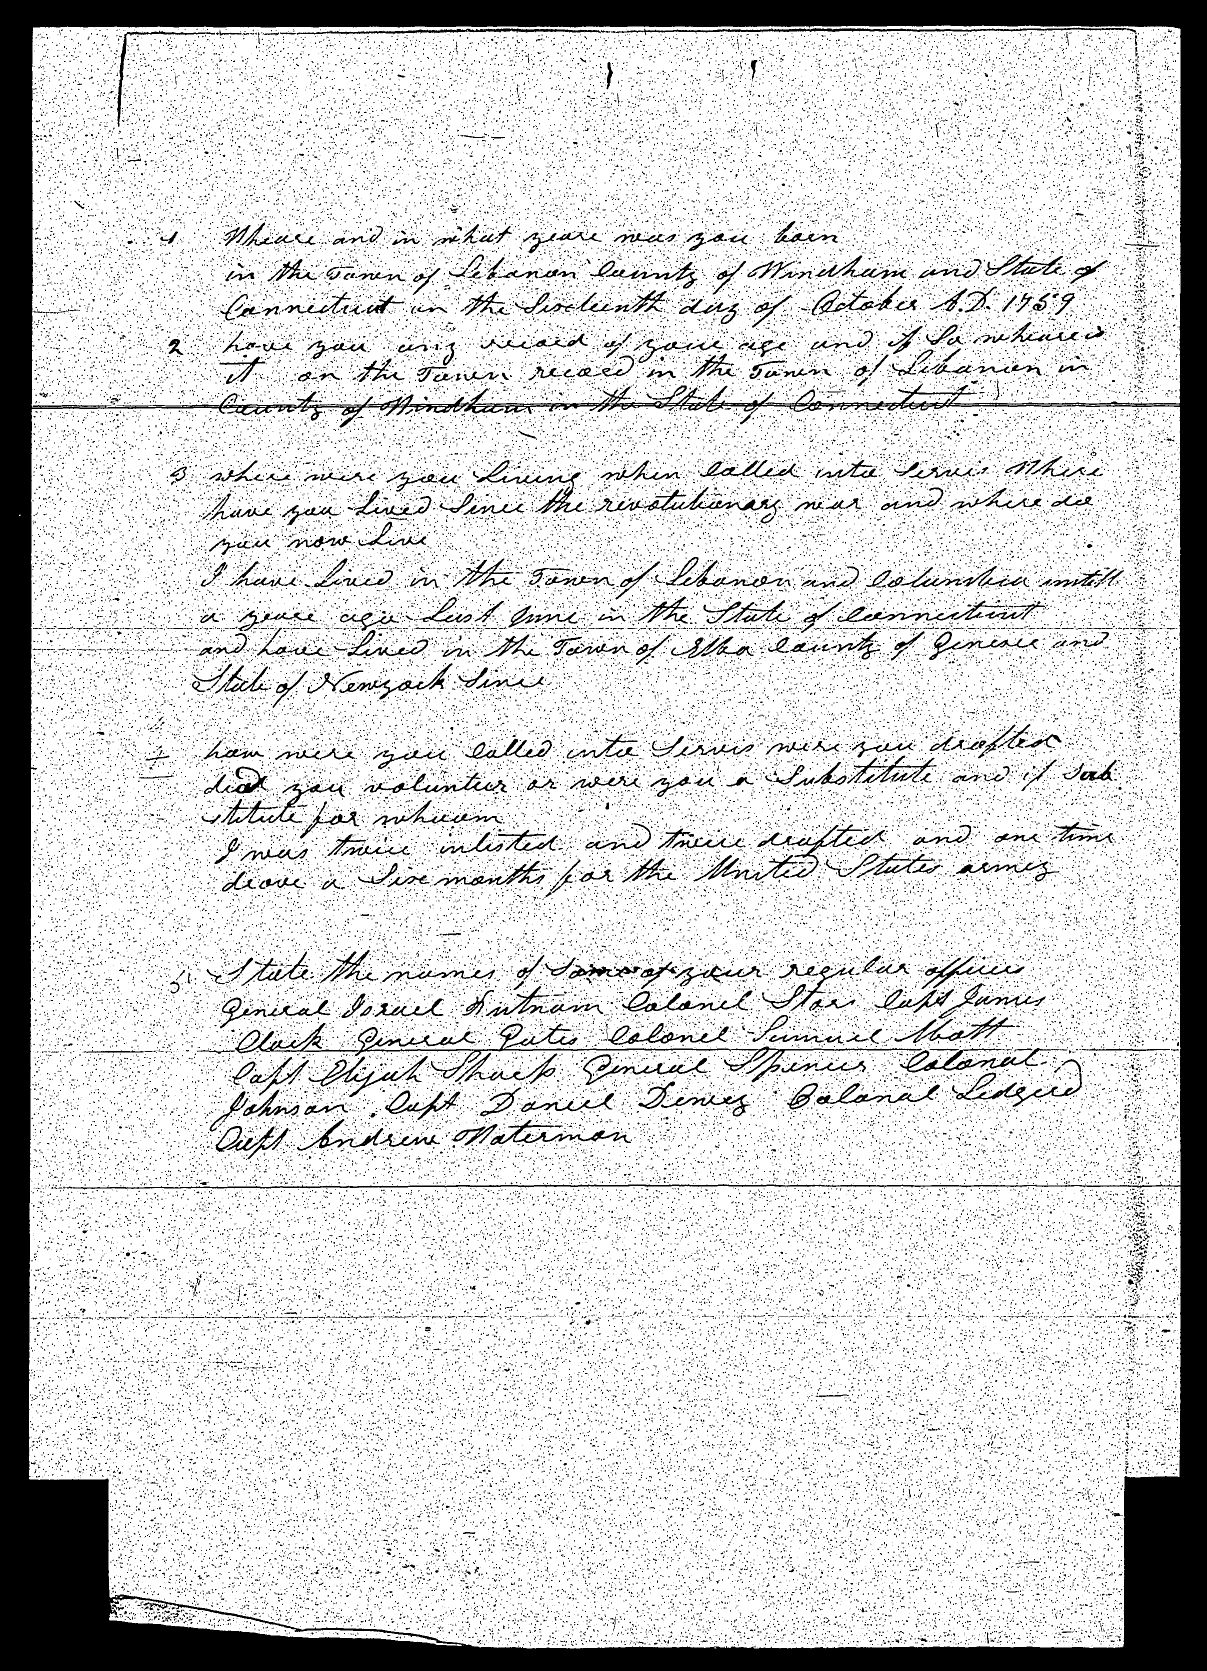 1 Wheare and in what yeare was you born
in the Town of Lebanon County of Windham and State of
Connecticut on the Sixteenth day of October A.D. 1759
2 have you any record of your age and if So wheare is
it on the Town record in the Town of Lebanon in
County of Windham in the State of Connecticut
3 where were you Living when Called into Servis Where
have you Lived Since the revolutionary war and where do
you now Live
I have Lived in the Town of Lebanon and Columbia untill
a yeare ago Last June in the State of Connecticut
and have Lived in the Town of Elba County of Genesee and
State of Newyork Since
4 how were you Called into Servis were you drafted
did you volunteer or were you a Substitute and if Sub
stitute for whoom
I was twice inlisted and twice drafted and one time
drove a Six months for the United States army
5 State the names of Some of your regular officers
General Israel Putnam Colonel Stors Capt James
Clark General Gates Colonel Samuel Mott
Capt Elijah Sharp General Spencer Colonal
Johnson Capt Daniel Dewey Colonal Ledgerd
Capt Andrew Waterman